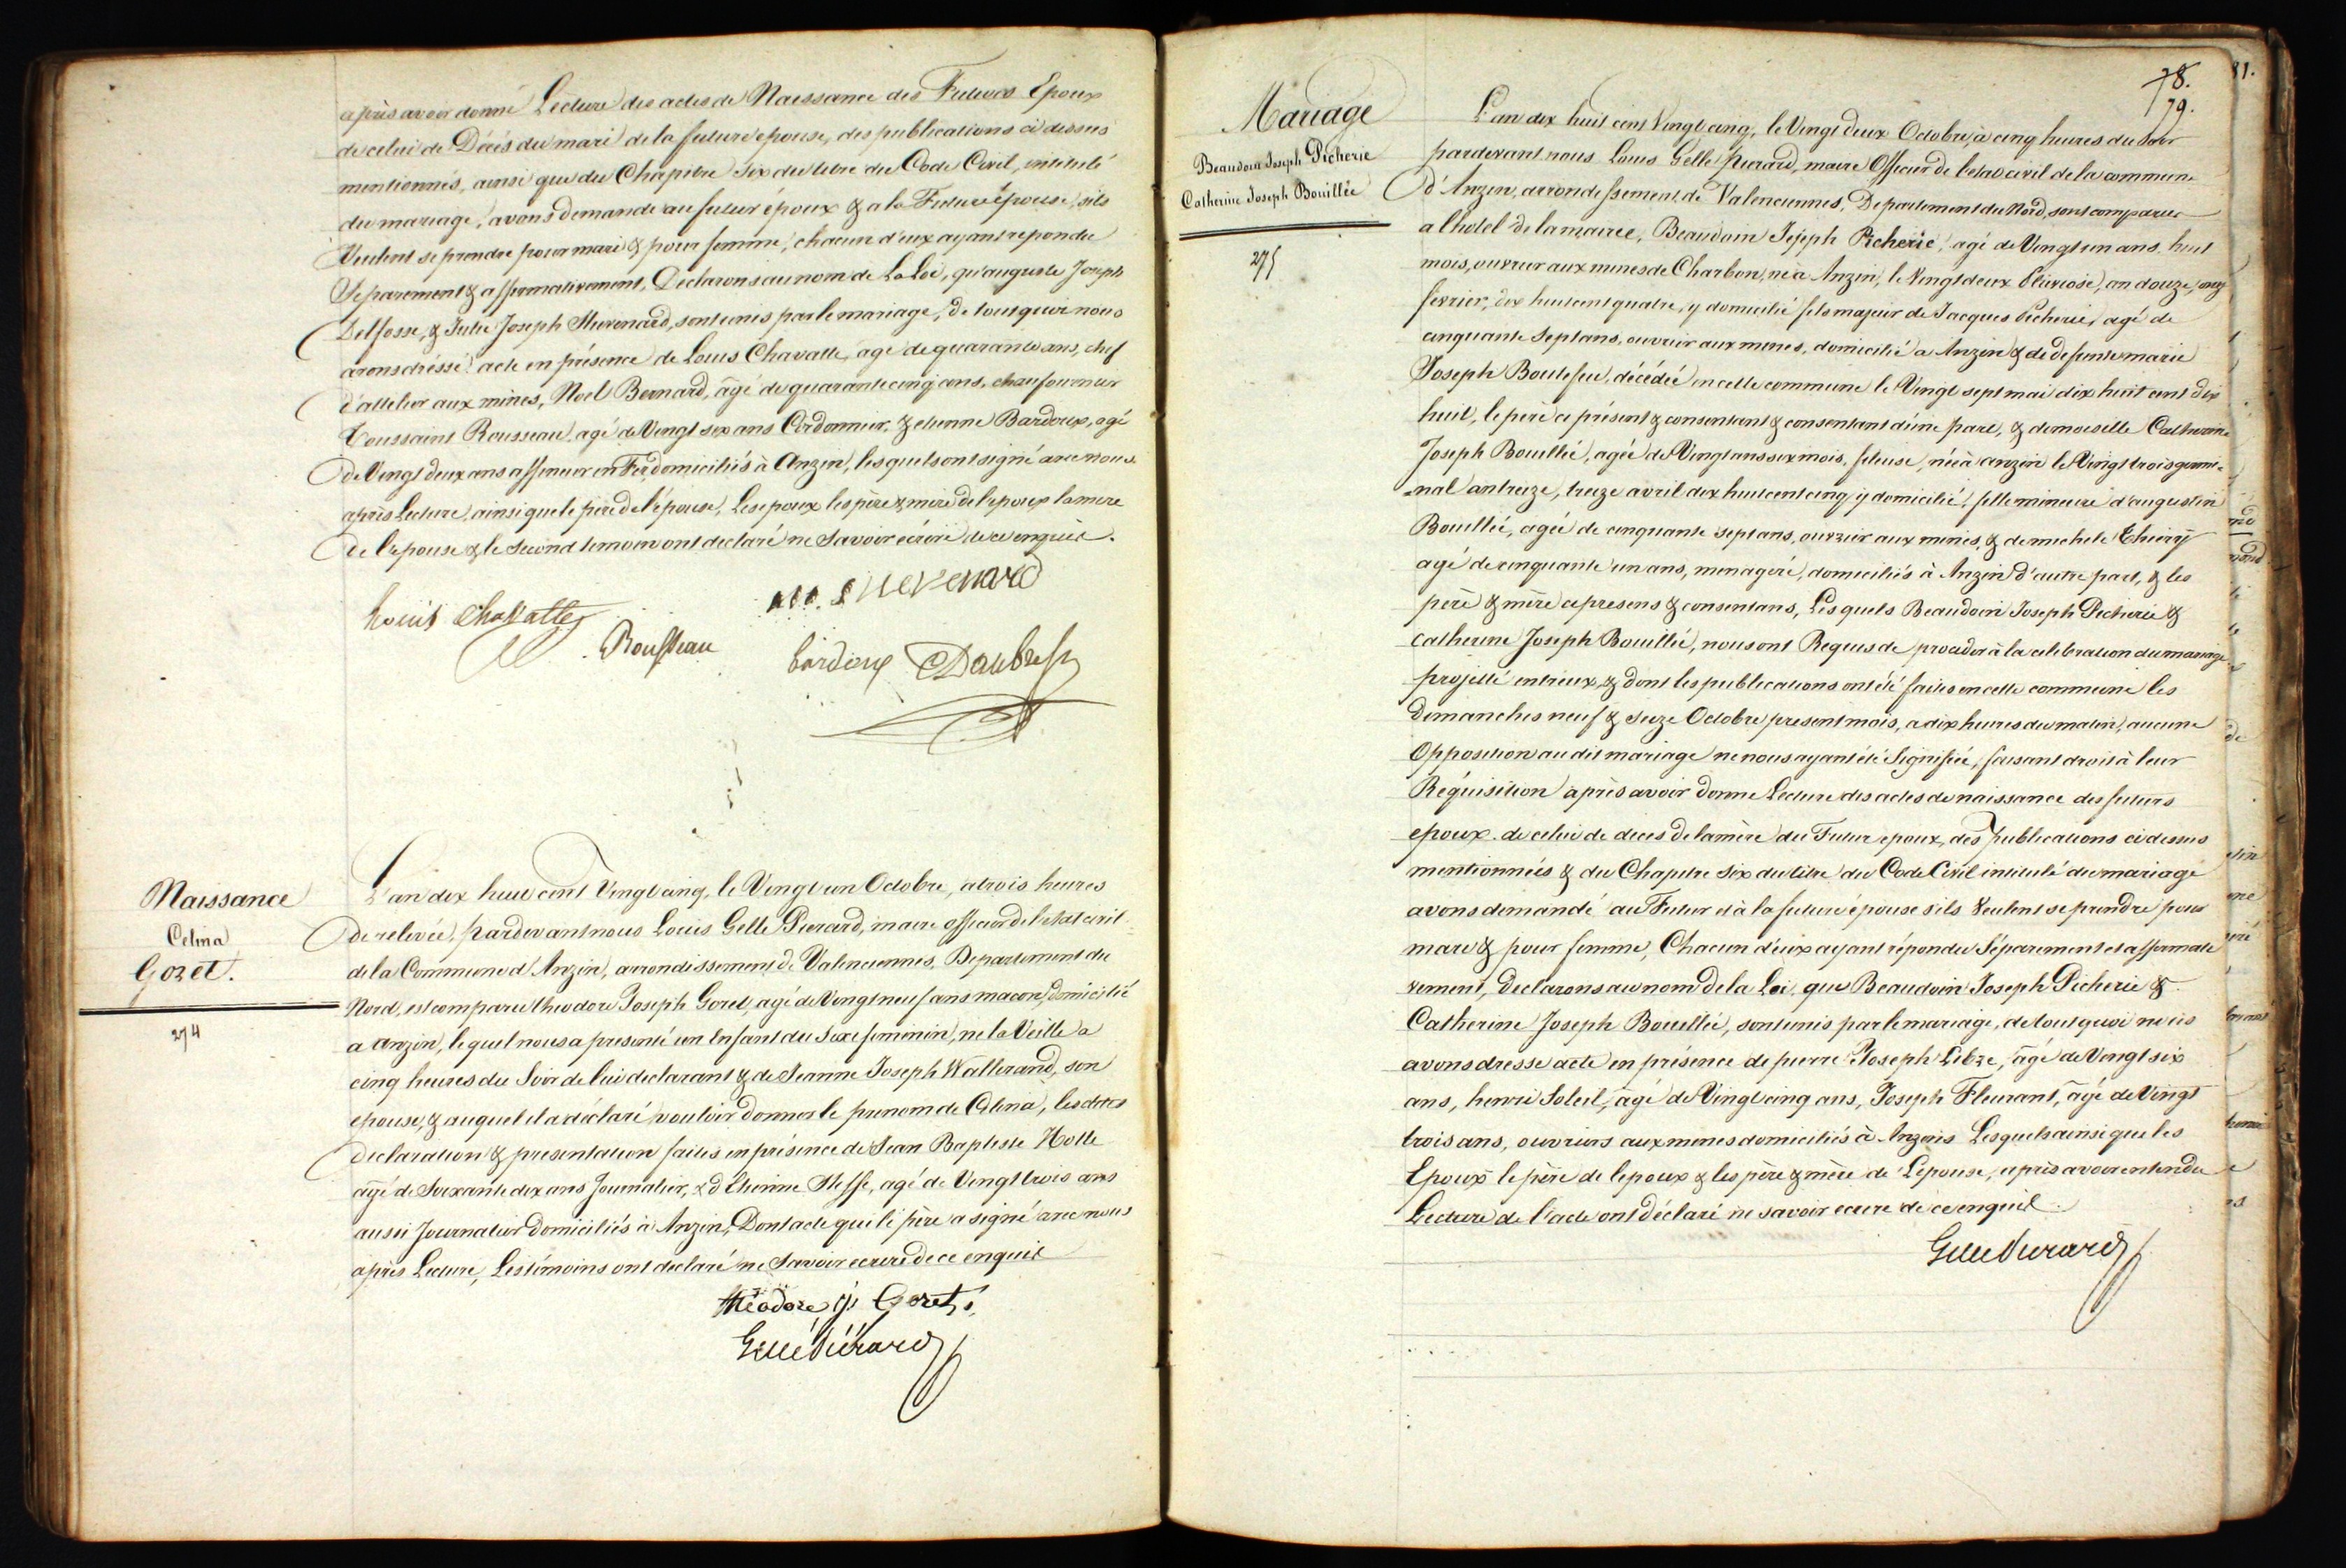 après avoir donné Lecture des actes de Naissance des Futurs Epoux
de celui de Décès du mari de la future epouse, des publications ci dessus
mentionnés, ainsi que du Chapitre six du titre du Code Civil, intitulé
du mariage, avons demandé au futur époux & a la Future Epouse, s'ils
Veulent se prendre pour mari & pour femme, chacun d'eux ayant repondu
Separement & affirmativement, Declarons au nom de La Loi, qu'auguste Joseph
Delfosse, & Julie Joseph Thevenard, sont unis par le mariage, de tout quoi nous
avons dréssé acte en présence de Louis Chavatte, agé de quarante ans, chef
d'attelier aux mines, Noel Bernard, âgé de quarante cinq ans, chaufourneur
Toussaint Rousseau, agé de Vingt six ans Cordonnier, & etienne Bardoux, agé
de Vingt deux ans affineur en Fer, domiciliés à Anzin, lesquels ont signé avec nous
après Lecture, ainsi que le père de l'épouse, Les epoux les père & mère de l'epoux la mere
de l'epouse & le second temoin ont declaré ne Savoir écrire de ce enquis.
Louis Chavatte
thevenard
Rousseau
bardoux Daubresse
Naissance
Celina
Goret.
274
L'an dix huit cent Vingt cinq, le Vingt un Octobre, a trois heures
de relevée, pardevant nous Louis Gellé Pierard, maire officier de l'etat civil
de la Commune d'Anzin, arrondissement de Valenciennes, Departement du
Nord, est comparu theodore Joseph Goret, agé de Vingt neuf ans macon domicilié
a anzin, lequel nous a presenté un Enfant du Sexe feminin, né la Veille a
cinq heures du Soir de lui declarant & de Jeanne Joseph Wallerand, son
epouse, & auquel il a déclaré vouloir donner le prenom de Celina, les dites
declaration & presentation faites en présence de Jean Baptiste Holle
âgé de Soixante dix ans Journalier, & d'Etienne Steffe, agé de Vingt trois ans
aussi Journalier domiciliés à Anzin, Dont acte qui le père a signé avec nous
après Lecture, Les témoins ont declaré ne Savoir ecrire de ce enquis
théodore js Goret
Gellé Piérard
78.
79.
Mariage
Beaudouin Joseph Picherie
Catherine Joseph Bouillée
275
L'an dix huit cent Vingt cinq, le Vingt deux Octobre, à cinq heures du Soir
pardevant nous Louis Gelle Pierard, maire Officier de l'etat civil de la commune
d'Anzin, arrondissement de Valenciennes, Departement du Nord, sont comparus
a l'hotel de la mairie, Beaudoin Joseph Picherie, agé de Vingt un ans huit
mois, ouvrier aux mines de Charbon, né a Anzin, le Vingt deux Pluviose, an douze, onze
fevrier, dix huit cent quatre, y domicilié fils majeur de Jacques Picherie, agé de
cinquante sept ans, ouvrier aux mines, domicilié a Anzin & de defunte marie
Joseph Boutefeu, décédée en cette commune le Vingt sept mai dix huit cent dix
huit, le père ce présent & consentant & consentant d'une part, & demoiselle Catherine
Joseph Bouillée, agée de Vingt ans six mois, fileuse, née à anzin le Vingt trois germi-
-nal an treize, treize avril dix huit cent cinq, y domicilié, fille mineure d'augustin
Bouillée, agée de cinquante sept ans, ouvrier aux mines, & de michele Thiery
agé de cinquante un ans, menagere, domiciliés à Anzin d'autre part, & les
père & mère ce presens & consentans, Lesquels Beaudoin Joseph Picherie &
Catherine Joseph Bouillée, nous ont Requis de proceder à la celebration du mariage
projetté entr'eux, & dont les publications ont été faites en cette commune les
dimanches neuf & seize Octobre present mois, a dix heures du matin, aucune
Opposition au dit mariage ne nous ayant été Signifiée, faisant droit à leur
Réquisition après avoir donné Lecture des actes de naissance des futurs
epoux. de celui de deces de la mère du Futur epoux, des publications ci dessus
mentionnés & du Chapitre six du titre du Code Civil intitulé du mariage
avons demandé au Futur et à la future épouse s'ils Veulent se prendre pour
mari & pour femme, Chacun d'eux ayant répondu Séparement et affirmati
vement, declarons au nom de la Loi, que Beaudoin Joseph Picherie &
Catherine Joseph Bouillée, sont unis par le mariage, de tout quoi nous
avons dresse acte en présence de pierre Joseph Libre, âgé de Vingt six
ans, henri Soleil, âgé de Vingt cinq ans, Joseph Fleurant, âgé de Vingt
trois ans, ouvriers aux mines domiciliés à Anzin Lesquels ainsi que les
Epoux le père de l'epoux & les père & mère de L'épouse, après avoir entendu
Lecture de l'acte ont déclaré ne savoir ecrire de ce enquis.
Gellé Pierard
81.